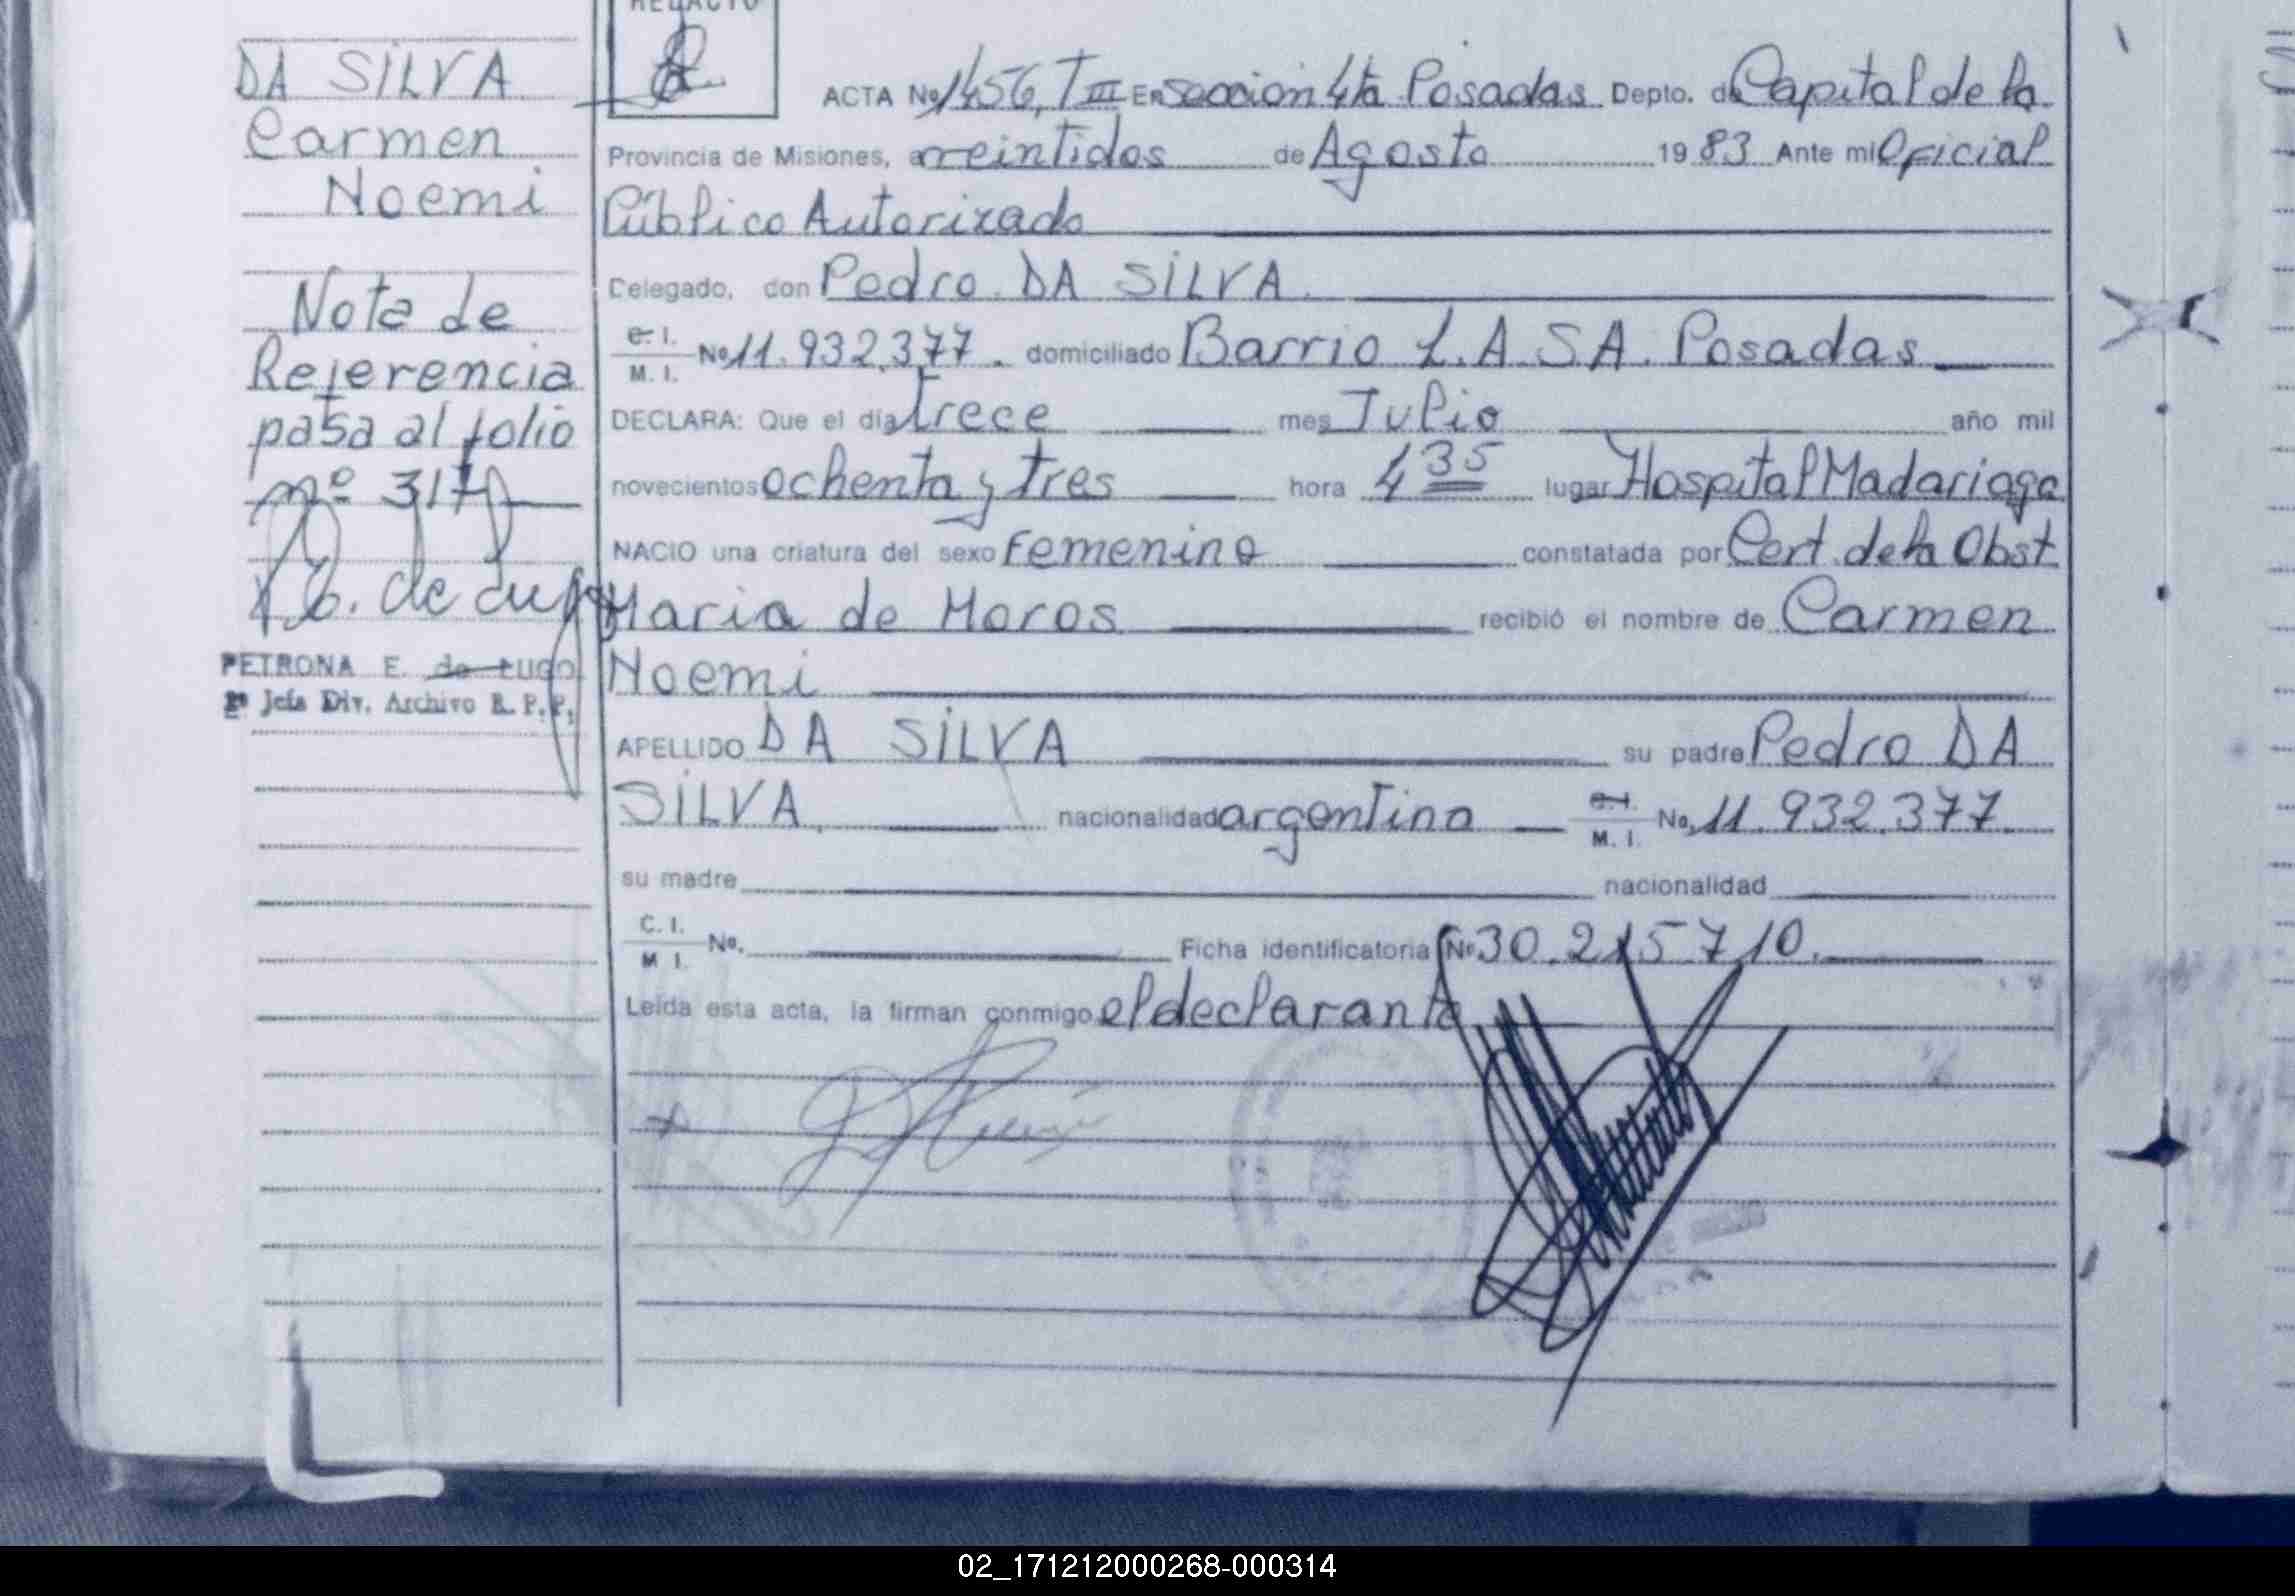 DA SILVA
Carmen
Noemi
Nota de
Referencia
pasa al folio
nº 317
PETRONA E. de LUGO
2ª Jefa Div. Archivo R. P. P.
REDACTO
ACTA Nº 1456, T III En sección 4ta Posadas Depto. de Capital de la
Provincia de Misiones, a veintidos de Agosto 1983 Ante mi Oficial
Público Autorizado
Delegado, don Pedro DA SILVA
C. I.
M. I. Nº 11.932.377. domiciliado Barrio L.A.S.A. Posadas
DECLARA: Que el día trece mes Julio año mil
novecientos ochenta y tres hora 4 35 lugar Hospital Madariaga
NACIO una criatura del sexo Femenino constatada por Cert. de la Obst
Maria de Moros recibió el nombre de Carmen
Noemi
APELLIDO DA SILVA su padre Pedro DA
SILVA nacionalidad argentino C. I.
M. I. Nº 11.932.377.
su madre nacionalidad
C. I.
M. I. Nº. Ficha identificatoria Nº 30.215.710.
Leída esta acta, la firman conmigo el declarante
02_171212000268-000314